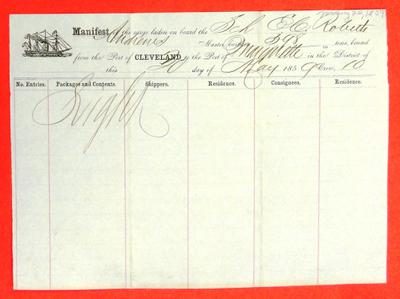 Manifest of the cargo laden on board the Sch E. C. Roberts
Master, burthen tons, bound
from the Port of CLEVELAND, to the Port of Marquette in the District of
this 30 day of May 1859 Crew, 10
No. Entries. Packages and Contents. Shippers. Residence. Consignees. Residence.
Light